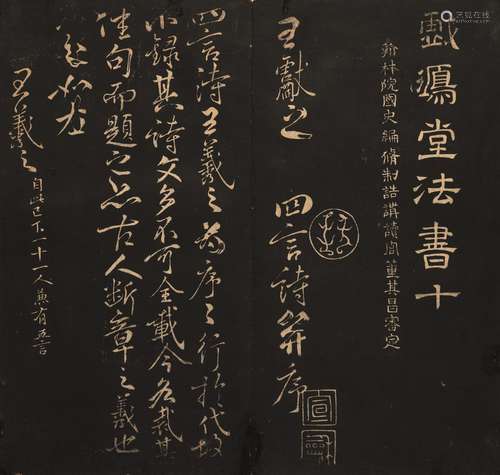 戲鴻堂法書十
翰林院國史編脩制誥講讀官董其昌審定
王獻之
四言詩并序
四言詩王羲之為序序行於代故
不錄其詩文多不可全載今各裁其
佳句而題之亦古人斷章之義也
王羲之
自此已下一十一人兼有五言